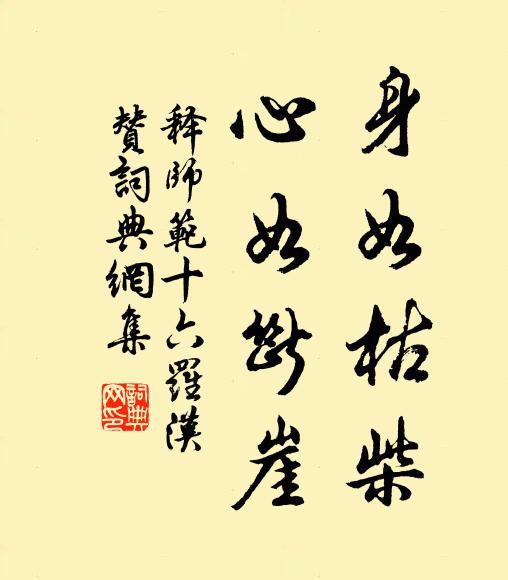 身如枯柴
心如斷崖
釋師範十六羅漢
贊詞典網集
詞典
网印